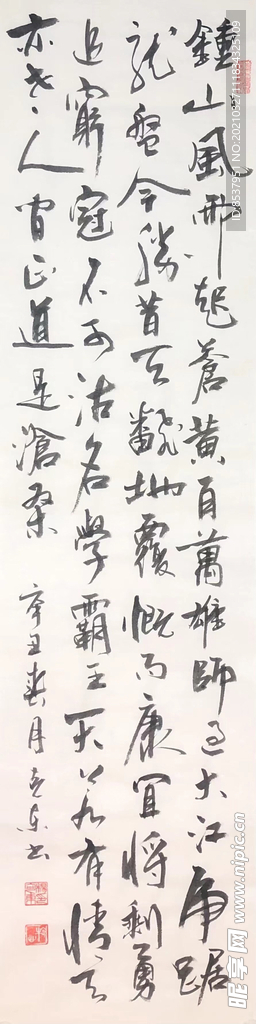 鍾山風雨起蒼黃百萬雄師過大江虎踞
龍盤今勝昔天飜地覆慨而康宜將剩勇
追窮寇不可沽名學霸王天若有情天
亦老人間正道是滄桑
辛丑春月
書
昵图网
www.nipic.cn